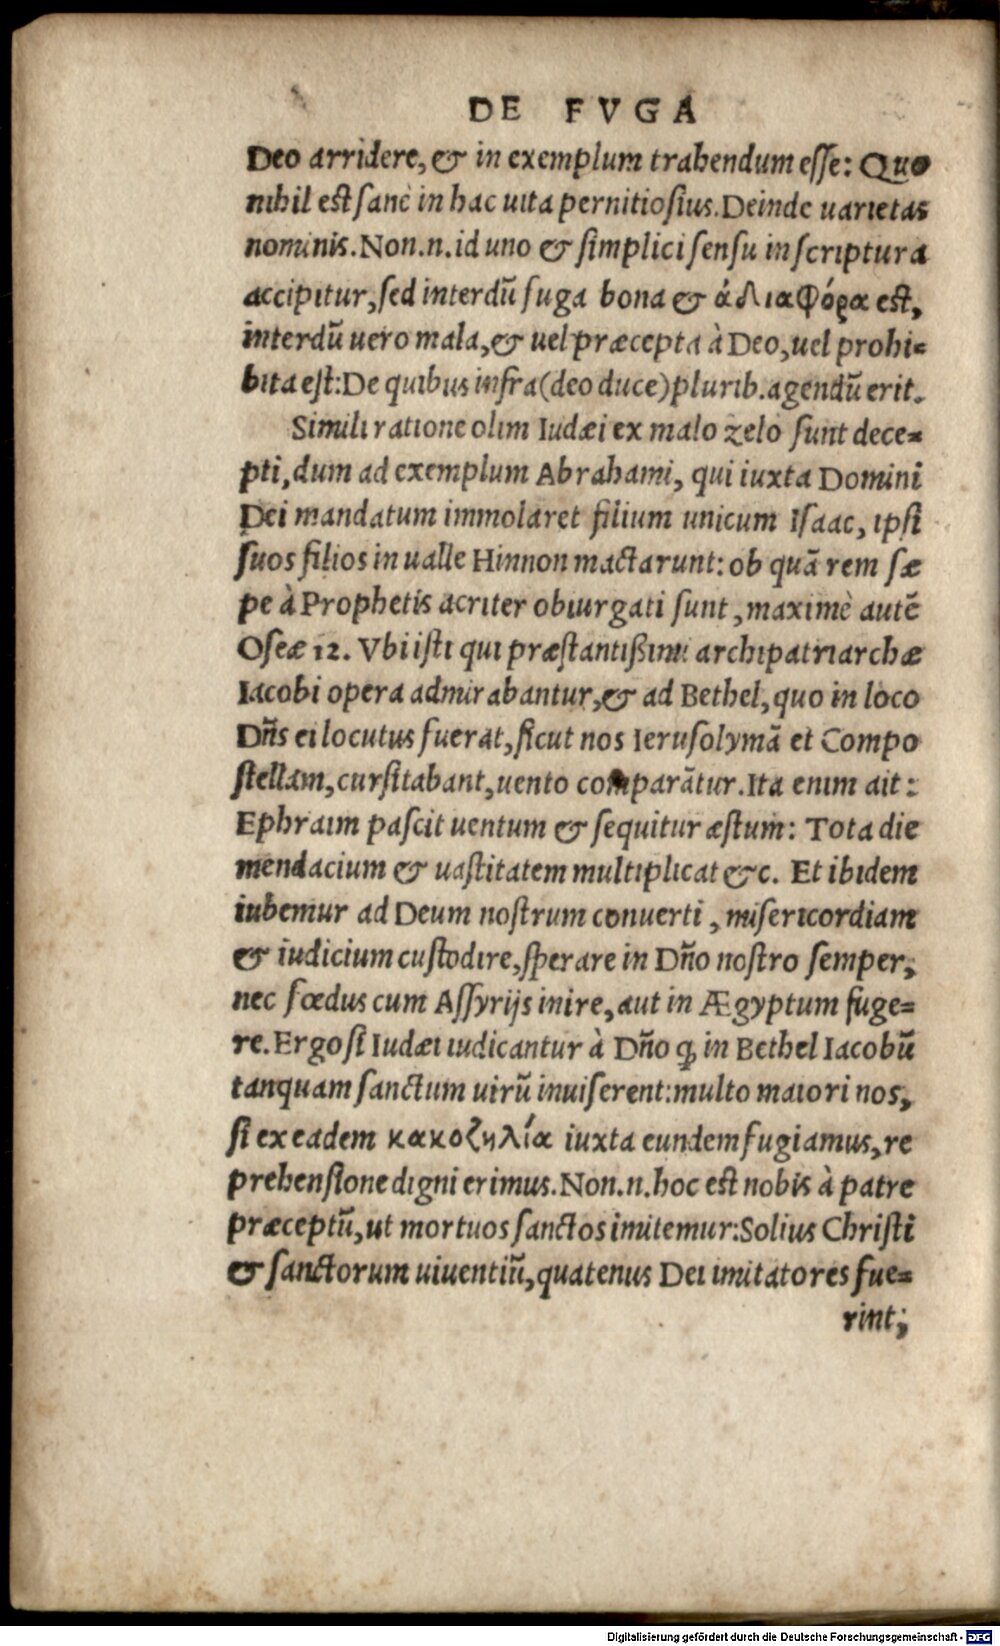 DE FVGA
Deo arridere, & in exemplum trahendum esse: Quo
nihil est sanè in hac uita pernitiosius. Deinde uarietas
nominis. Non.n. id uno & simplici sensu in scriptura
accipitur, sed interdũ fuga bona & ἀδιαφόρα est,
interdũ uero mala, & uel præcepta à Deo, uel prohi=
bita est: De quibus infra (deo duce) plurib. agendũ erit.
Simili ratione olim Iudæi ex malo zelo sunt dece=
pti, dum ad exemplum Abrahami, qui iuxta Domini
Dei mandatum immolaret filium unicum Isaac, ipsi
suos filios in ualle Hinnon mactarunt: ob quã rem sæ
pe à Prophetis acriter obiurgati sunt, maximè autẽ
Oseæ 12. Vbi isti qui præstantißimi archipatriarchæ
Iacobi opera admirabantur, & ad Bethel, quo in loco
Dñs ei locutus fuerat, sicut nos Ierusolymã et Compo
stellam, cursitabant, uento comparãtur. Ita enim ait:
Ephraim pascit uentum & sequitur æstum: Tota die
mendacium & uastitatem multiplicat &c. Et ibidem
iubemur ad Deum nostrum conuerti, misericordiam
& iudicium custodire, sperare in Dño nostro semper,
nec fœdus cum Assyrijs inire, aut in Ægyptum fuge=
re. Ergo si Iudæi iudicantur à Dño ꝙ in Bethel Iacobũ
tanquam sanctum uirũ inuiserent: multo maiori nos,
si ex eadem κακοζηλία iuxta eundem fugiamus, re
prehensione digni erimus. Non.n. hoc est nobis à patre
præceptũ, ut mortuos sanctos imitemur: Solius Christi
& sanctorum uiuentiũ, quatenus Dei imitatores fue=
rint;
Digitalisierung gefördert durch die Deutsche Forschungsgemeinschaft - DFG